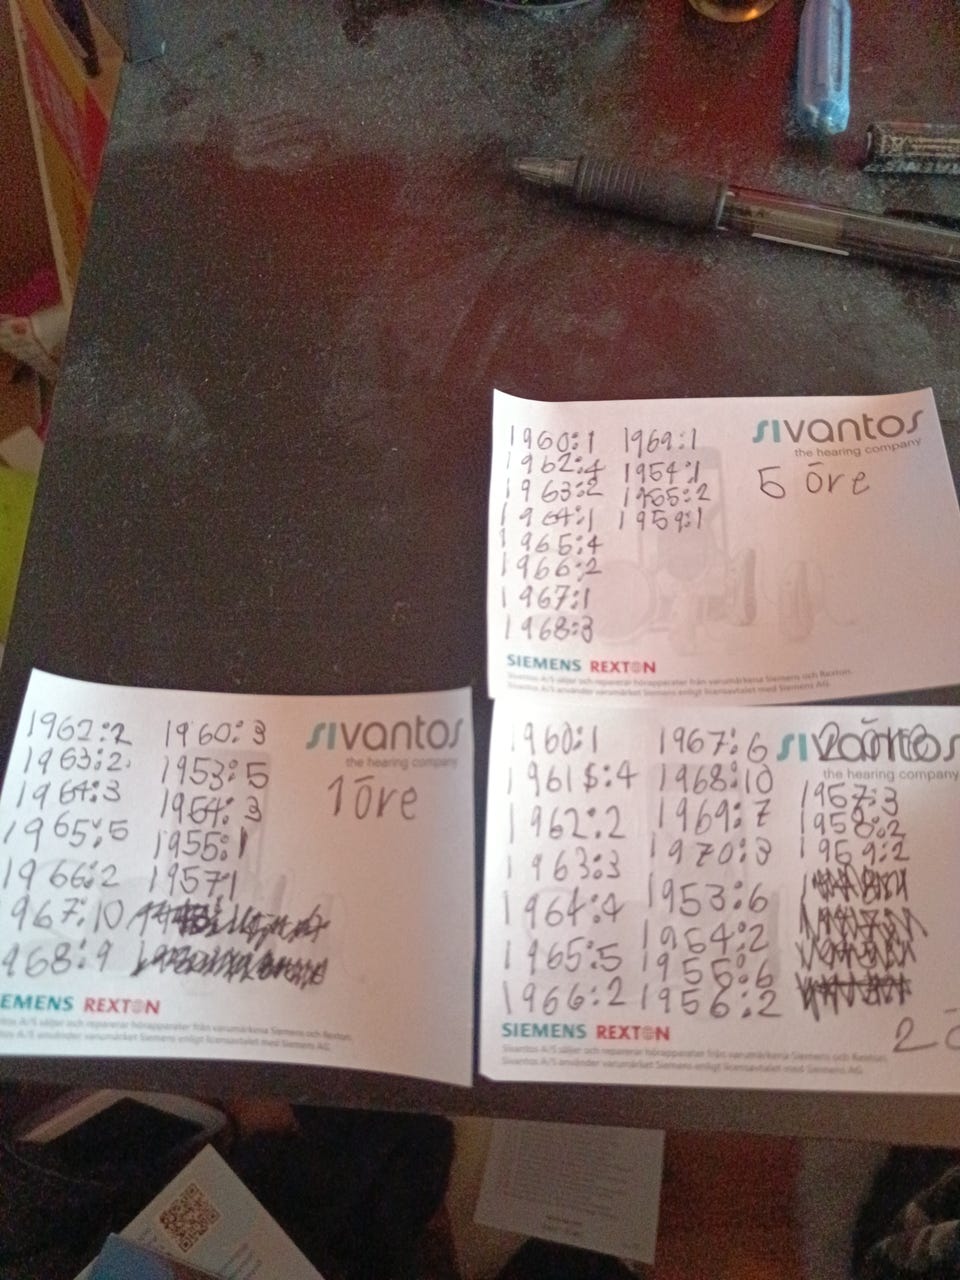 1960:1 1969:1
1962:4 1954:1
1963:2 1955:2
1964:1 1959:1
1965:4
1966:2
1967:1
1968:3
sivantos
the hearing company
5 öre
SIEMENS REXTON
Sivantos A/S säljer och reparerar hörapparater från varumärkena Siemens och Rexton.
Sivantos A/S använder varumärket Siemens enligt licensavtalet med Siemens AG.
1962:2 1960:3
1963:2 1953:5
1964:3 1954:3
1965:5 1955:1
1966:2 1957:1
967:10
968:9
sivantos
the hearing company
1 öre
EMENS REXTON
ntos A/S säljer och reparerar hörapparater från varumärkena Siemens och Rexton.
tos A/S använder varumärket Siemens enligt licensavtalet med Siemens AG.
1960:1 1967:6
1961:4 1968:10 1957:3
1962:2 1969:7 1958:2
1963:3 1970:3 1959:2
1964:4 1953:6
1965:5 1954:2
1966:2 1955:6
1956:2
sivantos
the hearing company
SIEMENS REXTON
Sivantos A/S säljer och reparerar hörapparater från varumärkena Siemens och Rexton.
Sivantos A/S använder varumärket Siemens enligt licensavtalet med Siemens AG.
2 ö